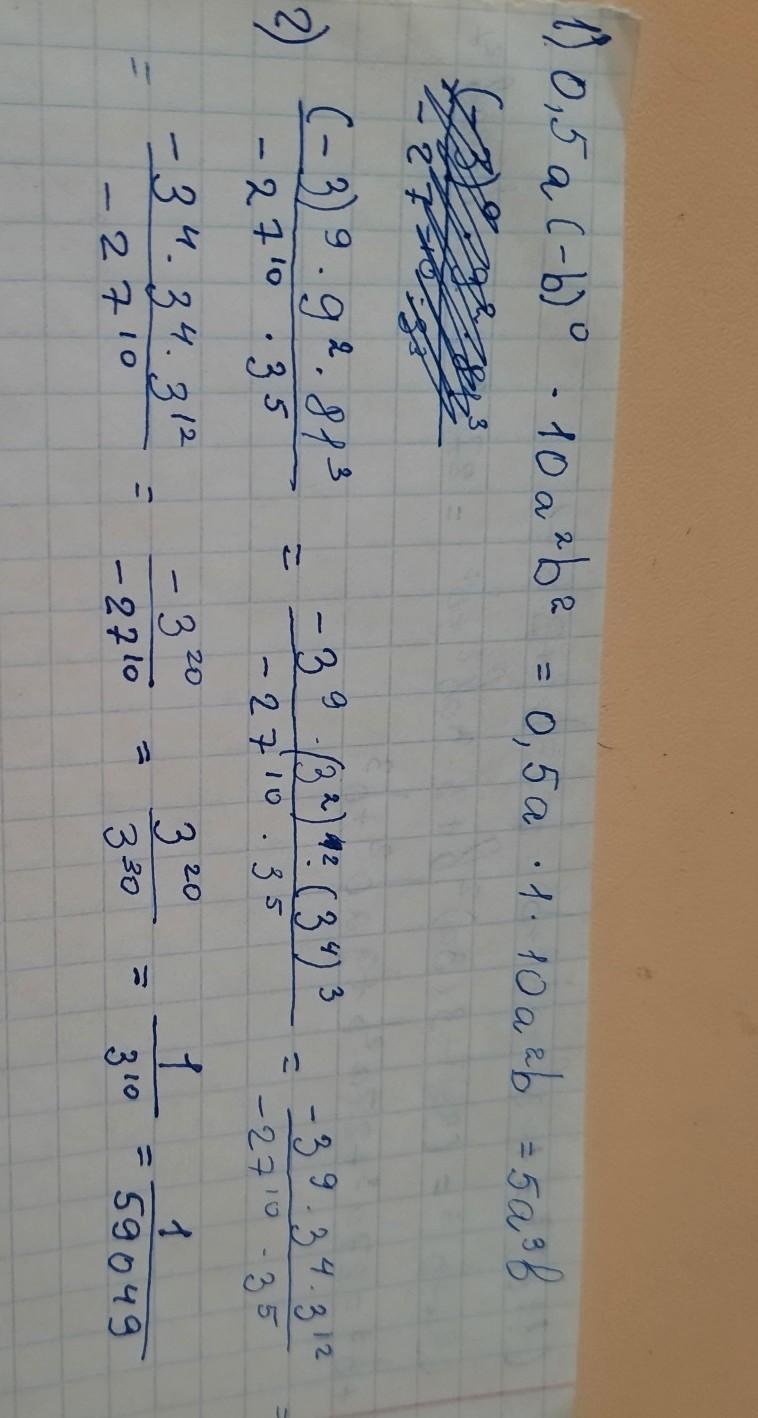 1) 0,5a(-b)⁰ · 10a²b² = 0,5a · 1 · 10a²b = 5a³b
2) (-3)⁹ · 9² · 81³ / -27¹⁰ · 3⁵ = -3⁹ · (3²)² · (3⁴)³ / -27¹⁰ · 3⁵ = -3⁹ · 3⁴ · 3¹² / -27¹⁰ · 3⁵ =
= -3⁴ · 3⁴ · 3¹² / -27¹⁰ = -3²⁰ / -27¹⁰ = 3²⁰ / 3³⁰ = 1 / 3¹⁰ = 1 / 59049